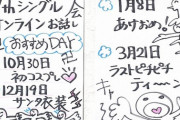 7thシングル
オンラインお話し会
おすすめDAY
10月30日
初ココスプレ
12月19日
サンタ衣装
1月8日
あけおめ!
3月21日
ラストピチピチ
ティーーン